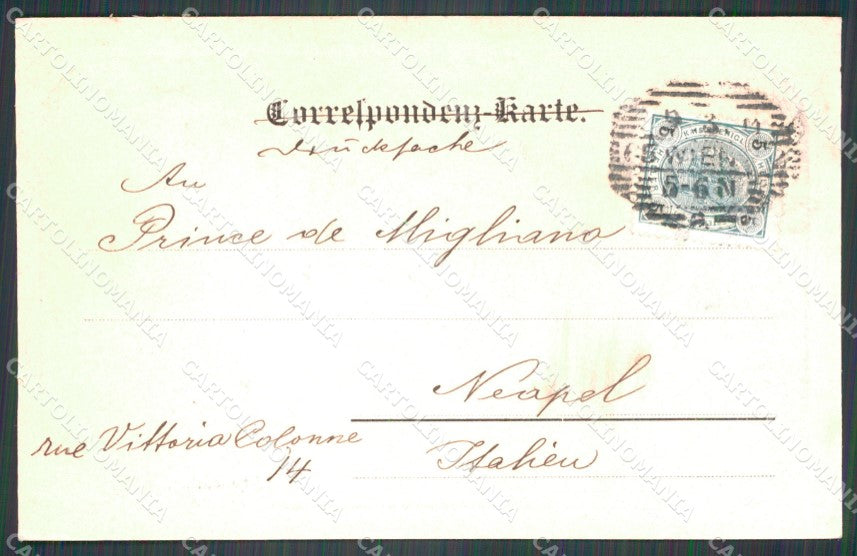 Correspondenz-Karte.
Drucksache
An
Prince de Migliano
Neapel
rue Vittoria Colonne
14
Italien
WIEN
5-6 N
CARTOLINOMANIA